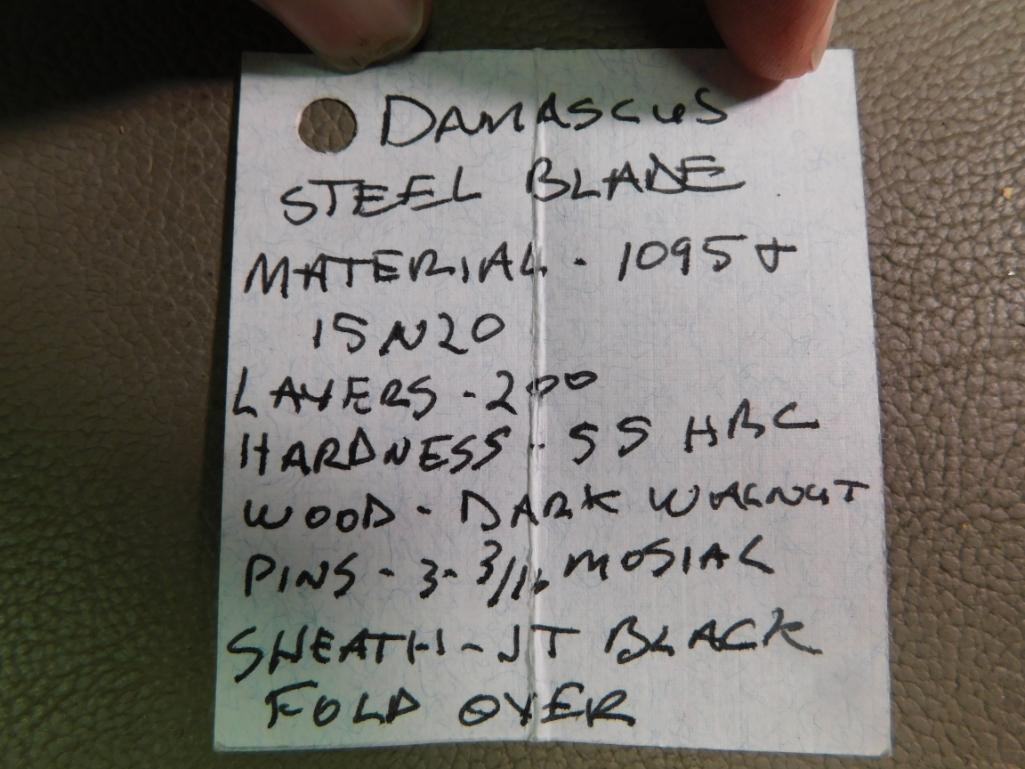 DAMASCUS
STEEL BLADE
MATERIAL - 1095 +
15N20
LAYERS - 200
HARDNESS - 55 HRC
WOOD - DARK WALNUT
PINS - 3 - 3/16 MOSIAC
SHEATH - JT BLACK
FOLD OVER